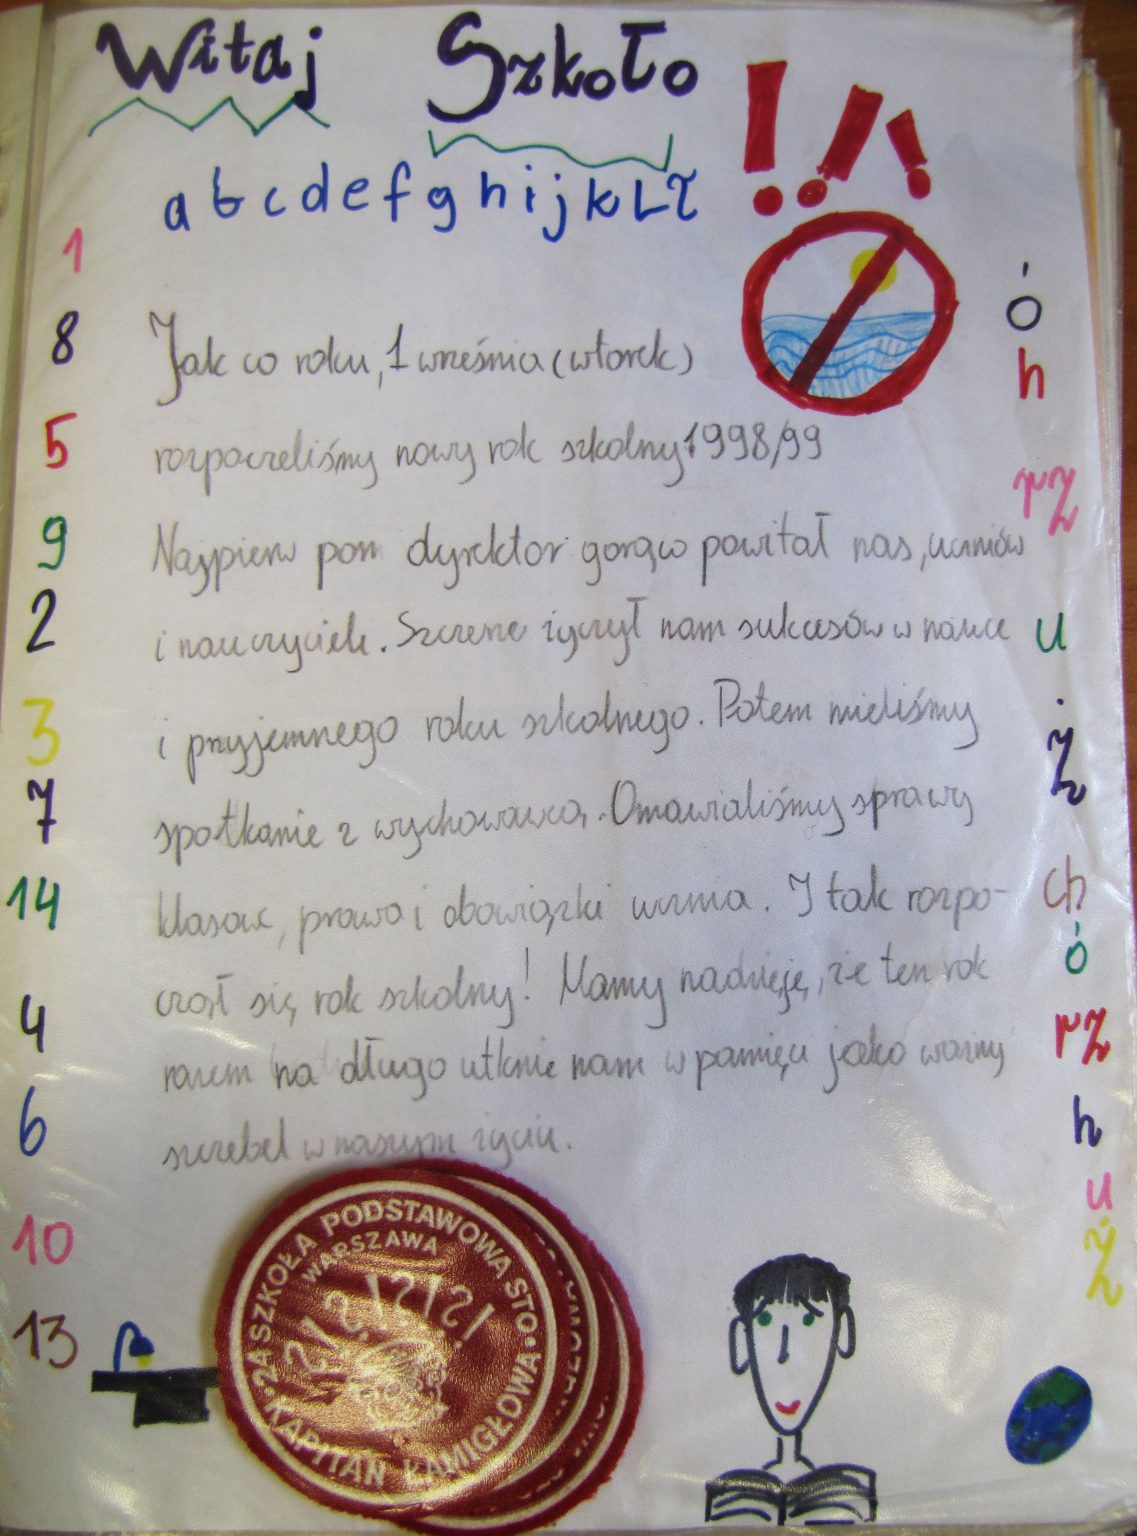 Witaj Szkoło !!!
a b c d e f g h i j k L Ł
1
8
5
9
2
3
7
14
4
6
10
13
Jak co roku, 1 września (wtorek)
rozpoczeliśmy nowy rok szkolny 1998/99
Najpierw pan dyrektor gorąco powitał nas, uczniów
i nauczyciele. Szczerze życzył nam sukcesów w nauce
i przyjemnego roku szkolnego. Potem mieliśmy
spotkanie z wychowawcą. Omawialiśmy sprawy
klasowe, prawa i obowiązki ucznia. I tak rozpo-
czął się rok szkolny! Mamy nadzieję, że ten rok
razem na długo utknie nam w pamięci jako ważny
szczebel w naszym życiu.
ó
h
rz
u
ż
ch
ó
rz
h
u
ż
24 SZKOŁA PODSTAWOWA STO
WARSZAWA
?!?!?!?!
KAPITAN ŁAMIGŁOWA